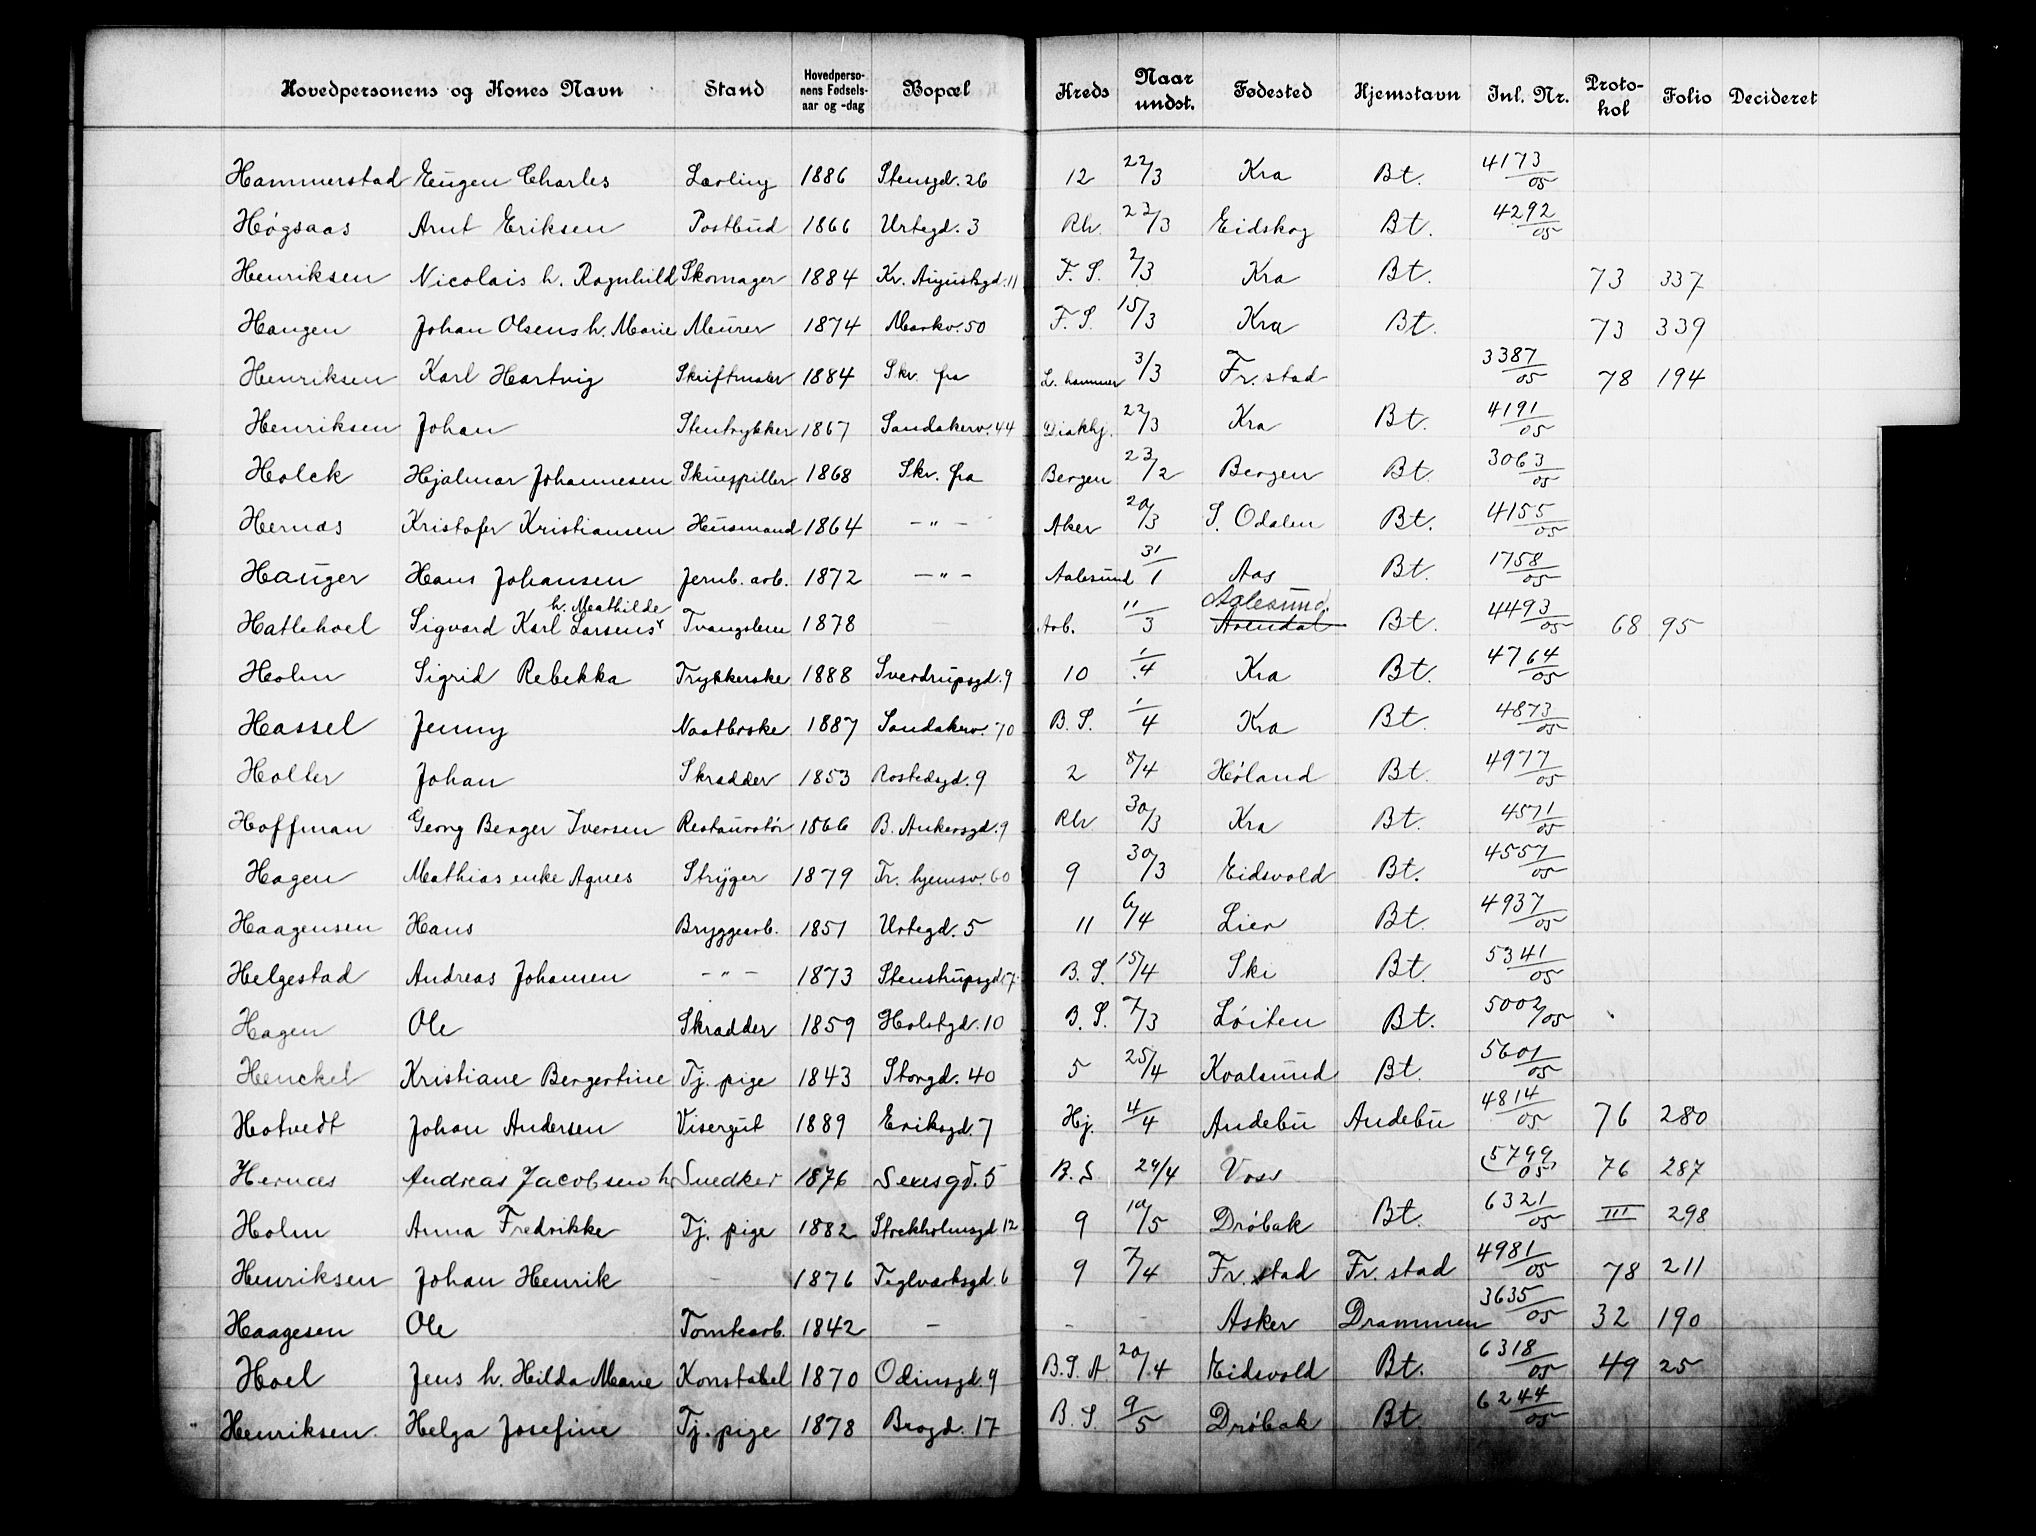 Hovedpersonens og Kones Navn Stand Hovedpersonens Fødselsaar og -dag Bopæl Kreds Naar undst. Fødested Hjemstavn Inl. Nr. Protokol Folio Decideret
Hammerstad Eugen Charles Lærling 1886 Stensgd. 26 12 22/3 Kra Bt. 4173/05
Høgsaas Arnt Eriksen Postbud 1866 Urtegd. 3 Rh. 22/3 Eidskog Bt. 4292/05
Henriksen Nicolais h. Ragnhild Skomager 1884 Kr. Augustsgd. 11 F. S. 2/3 Kra Bt. 73 337
Haugen Johan Olsens h. Marie Murer 1874 Markv. 50 F. S. 15/3 Kra Bt. 73 339
Henriksen Karl Hartvig Skriftmaler 1884 Skr. fra L. hammer 3/3 Fr. stad 3387/05 78 194
Henriksen Johan Stentrykker 1867 Sandakerv. 44 Diakhj. 22/3 Kra Bt. 4191/05
Holck Hjalmar Johannesen Skuespiller 1868 Skr. fra Bergen 23/2 Bergen Bt. 3063/05
Hernæs Kristofer Kristiansen Husmand 1864 -"- Aker 20/3 S. Odalen Bt. 4155/05
Hauger Hans Johansen Jernb. arb. 1872 -"- Aalesund 31/1 Aas Bt. 1758/05
h. Mathilde Aalesund.
Hatlehoel Sigvard Karl Larsens Tvangslem 1878 Arb. 11/3 Arendal Bt. 4493/05 68 95
Holm Sigrid Rebekka Trykkerske 1888 Sverdrupsgd. 9 10 1/4 Kra Bt. 4764/05
Hassel Jenny Naatlerske 1887 Sandakerv. 70 B. S. 1/4 Kra Bt. 4873/05
Holter Johan Skrædder 1853 Rostedsgd. 9 2 8/4 Høland Bt. 4977/05
Hoffman Georg Berger Iversen Restauratør 1866 B. Ankersgd. 9 Rh 30/3 Kra Bt. 4571/05
Hagen Mathias enke Agnes Stryger 1879 Tr. hjemsv. 60 9 30/3 Eidsvold Bt. 4557/05
Haagensen Hans Bryggearb. 1851 Urtegd. 5 11 6/4 Lier Bt. 4937/05
Helgestad Andreas Johansen -"- 1873 Stenstrupsgd. 7 B. S. 15/4 Ski Bt. 5341/05
Hagen Ole Skrædder 1859 Holstgd. 10 B. S. 7/3 Løiten Bt. 5002/05
Henckel Kristiane Bergertine Tj. pige 1843 Storgd. 40 5 25/4 Kvalsund Bt. 5601/05
Hotvedt Johan Andersen Visergut 1889 Eriksgd. 7 Hj. 4/4 Andebu Andebu 4814/05 76 280
Hernæs Andreas Jacobsen h Snedker 1876 Sexesgd. 5 B. S 29/4 Voss 5799/05 76 287
Holm Anna Fredrikke Tj. pige 1882 Stockholmsgd 12 9 10/5 Drøbak Bt. 6321/05 III 298
Henriksen Johan Henrik - 1876 Teglværksgd. 6 9 7/4 Fr. stad Fr. stad 4981/05 78 211
Haagesen Ole Tomtearb. 1842 - - - Asker Drammen 3635/05 32 190
Hoel Jens h. Hilda Marie Konstabel 1870 Odinsgd. 9 B. S. A. 20/4 Eidsvold Bt. 6318/05 49 25
Henriksen Helga Josefine Tj. pige 1878 Brogd. 17 B. S. 9/5 Drøbak Bt 6244/05